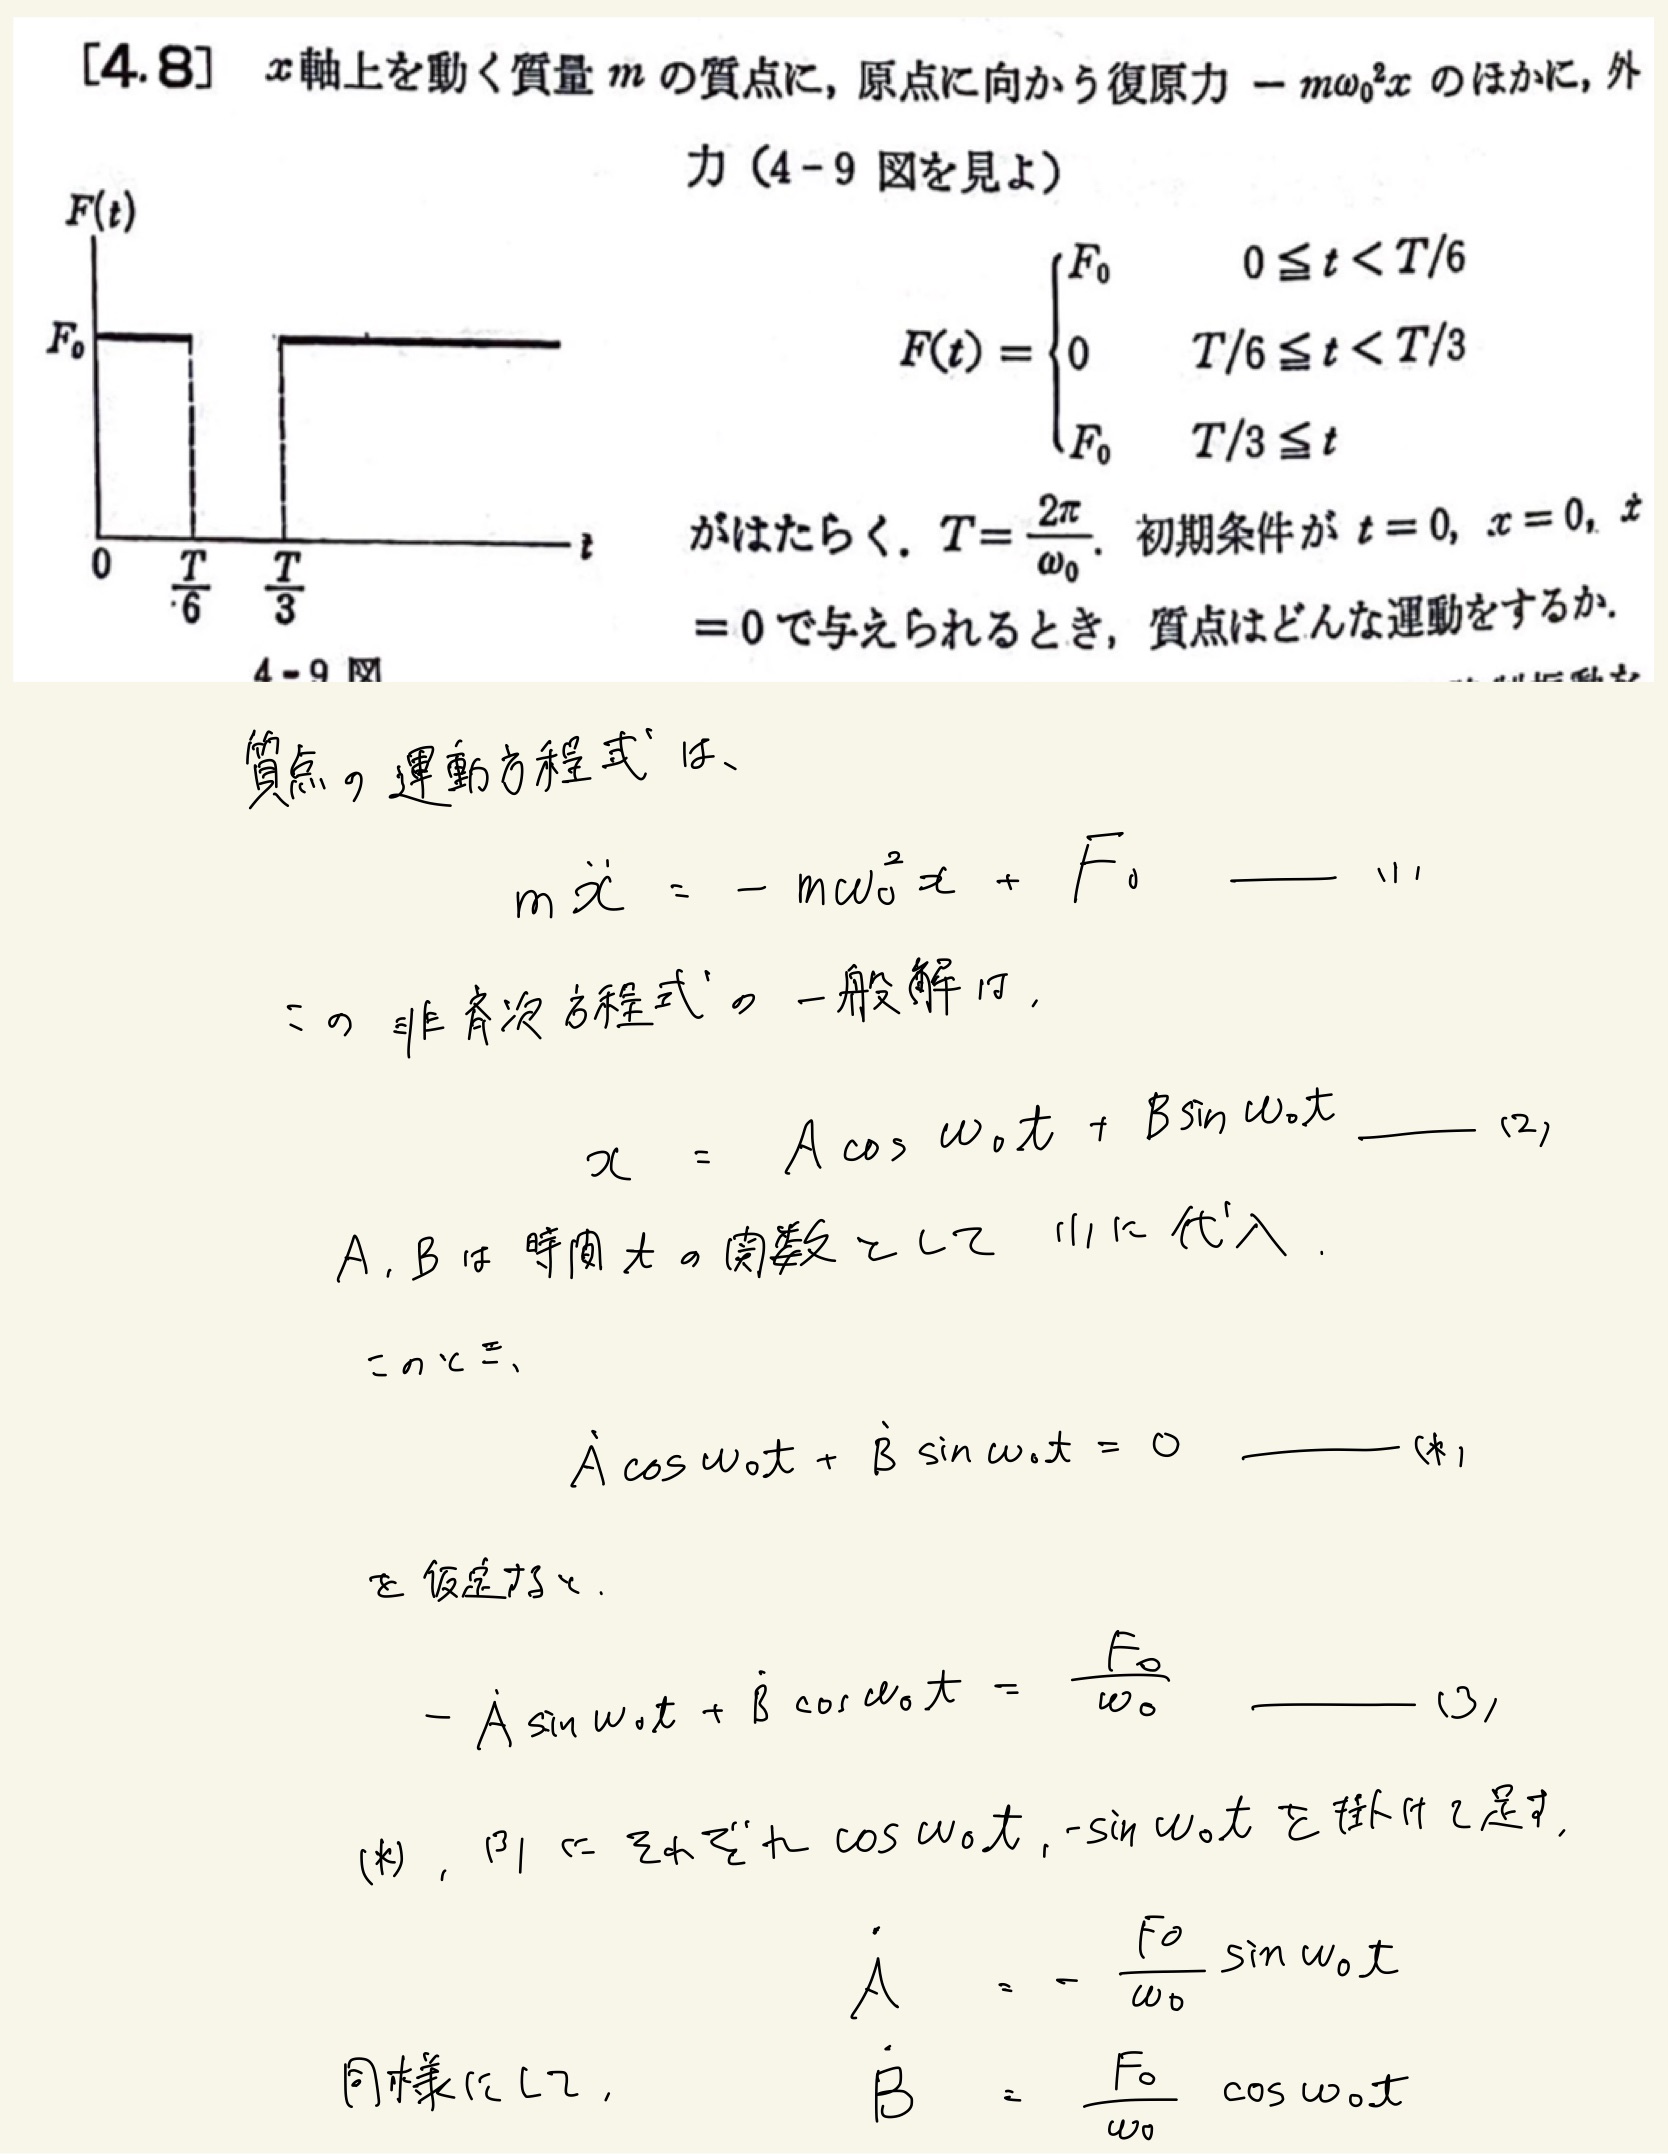 [4.8] x軸上を動く質量 m の質点に, 原点に向かう復原力 − mω₀²x のほかに, 外
力 (4-9 図を見よ)
F(t)
F₀
0 T/6 T/3 t
4-9 図
F(t) = { F₀ 0 ≦ t < T/6
0 T/6 ≦ t < T/3
F₀ T/3 ≦ t
がはたらく. T = 2π/ω₀. 初期条件が t = 0, x = 0, ẋ
= 0 で与えられるとき, 質点はどんな運動をするか.
質点の運動方程式は、
mẍ = − mω₀²x + F₀ —— (1)
この非斉次方程式の一般解は,
x = A cos ω₀t + B sin ω₀t —— (2)
A, B は時間 t の関数として (1)に代入.
このとき、
Ȧ cos ω₀t + Ḃ sin ω₀t = 0 —— (*)
を仮定すると.
− Ȧ sin ω₀t + Ḃ cos ω₀t = F₀/ω₀ —— (3)
(*), (3) にそれぞれ cos ω₀t, −sin ω₀t を掛けて足す.
Ȧ = − F₀/ω₀ sin ω₀t
同様にして, Ḃ = F₀/ω₀ cos ω₀t